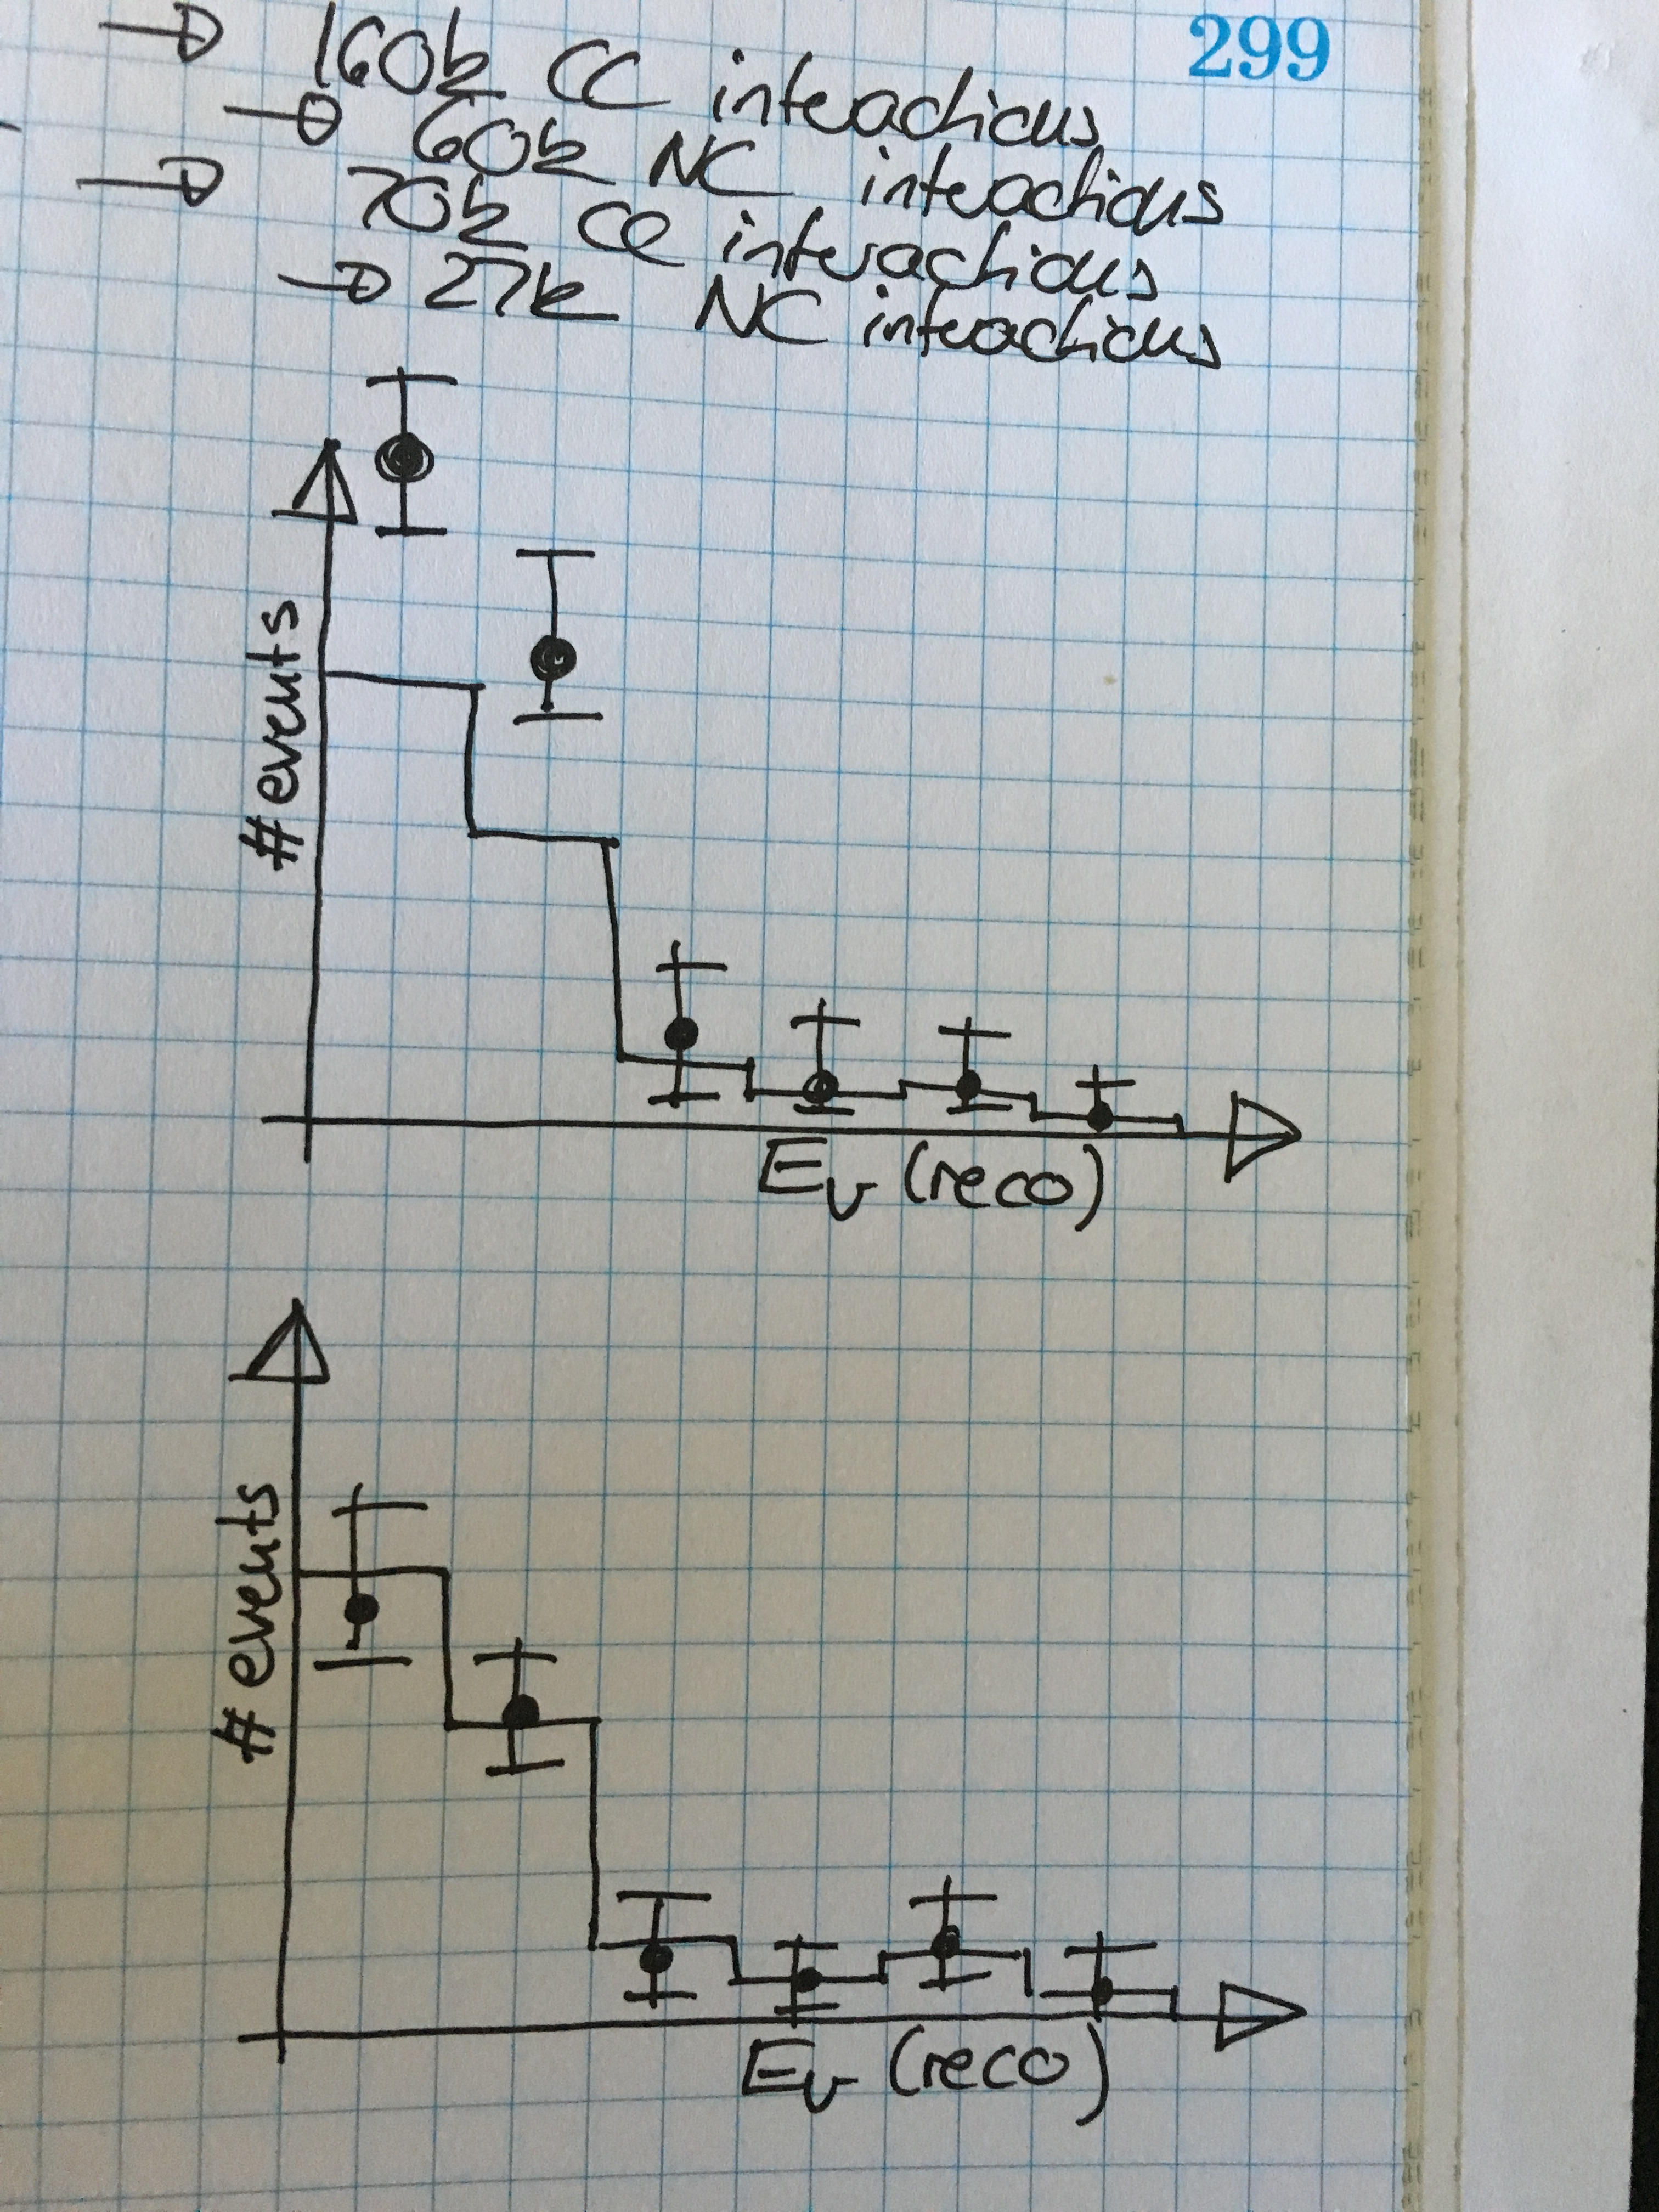 299
→ 160k CC interactions
→ 60k NC interactions
→ 70k CC interactions
→ 27k NC interactions
# events
Eν (reco)
# events
Eν (reco)